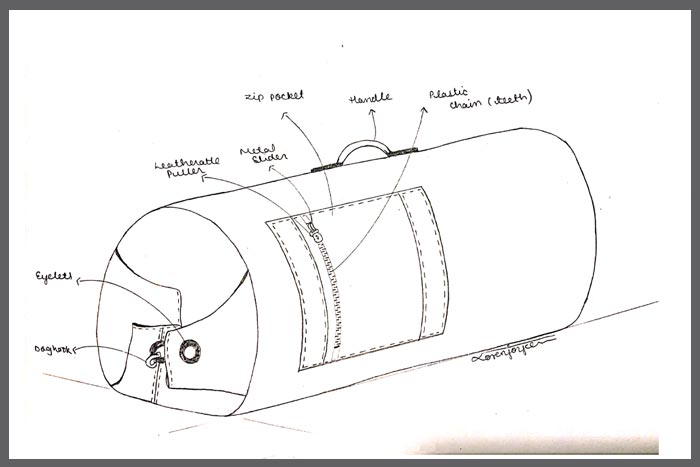 Zip pocket
Handle
Plastic
chain (teeth)
Metal
Slider
Leatherable
Puller
Eyelets
Doghook
Lorenjoyce